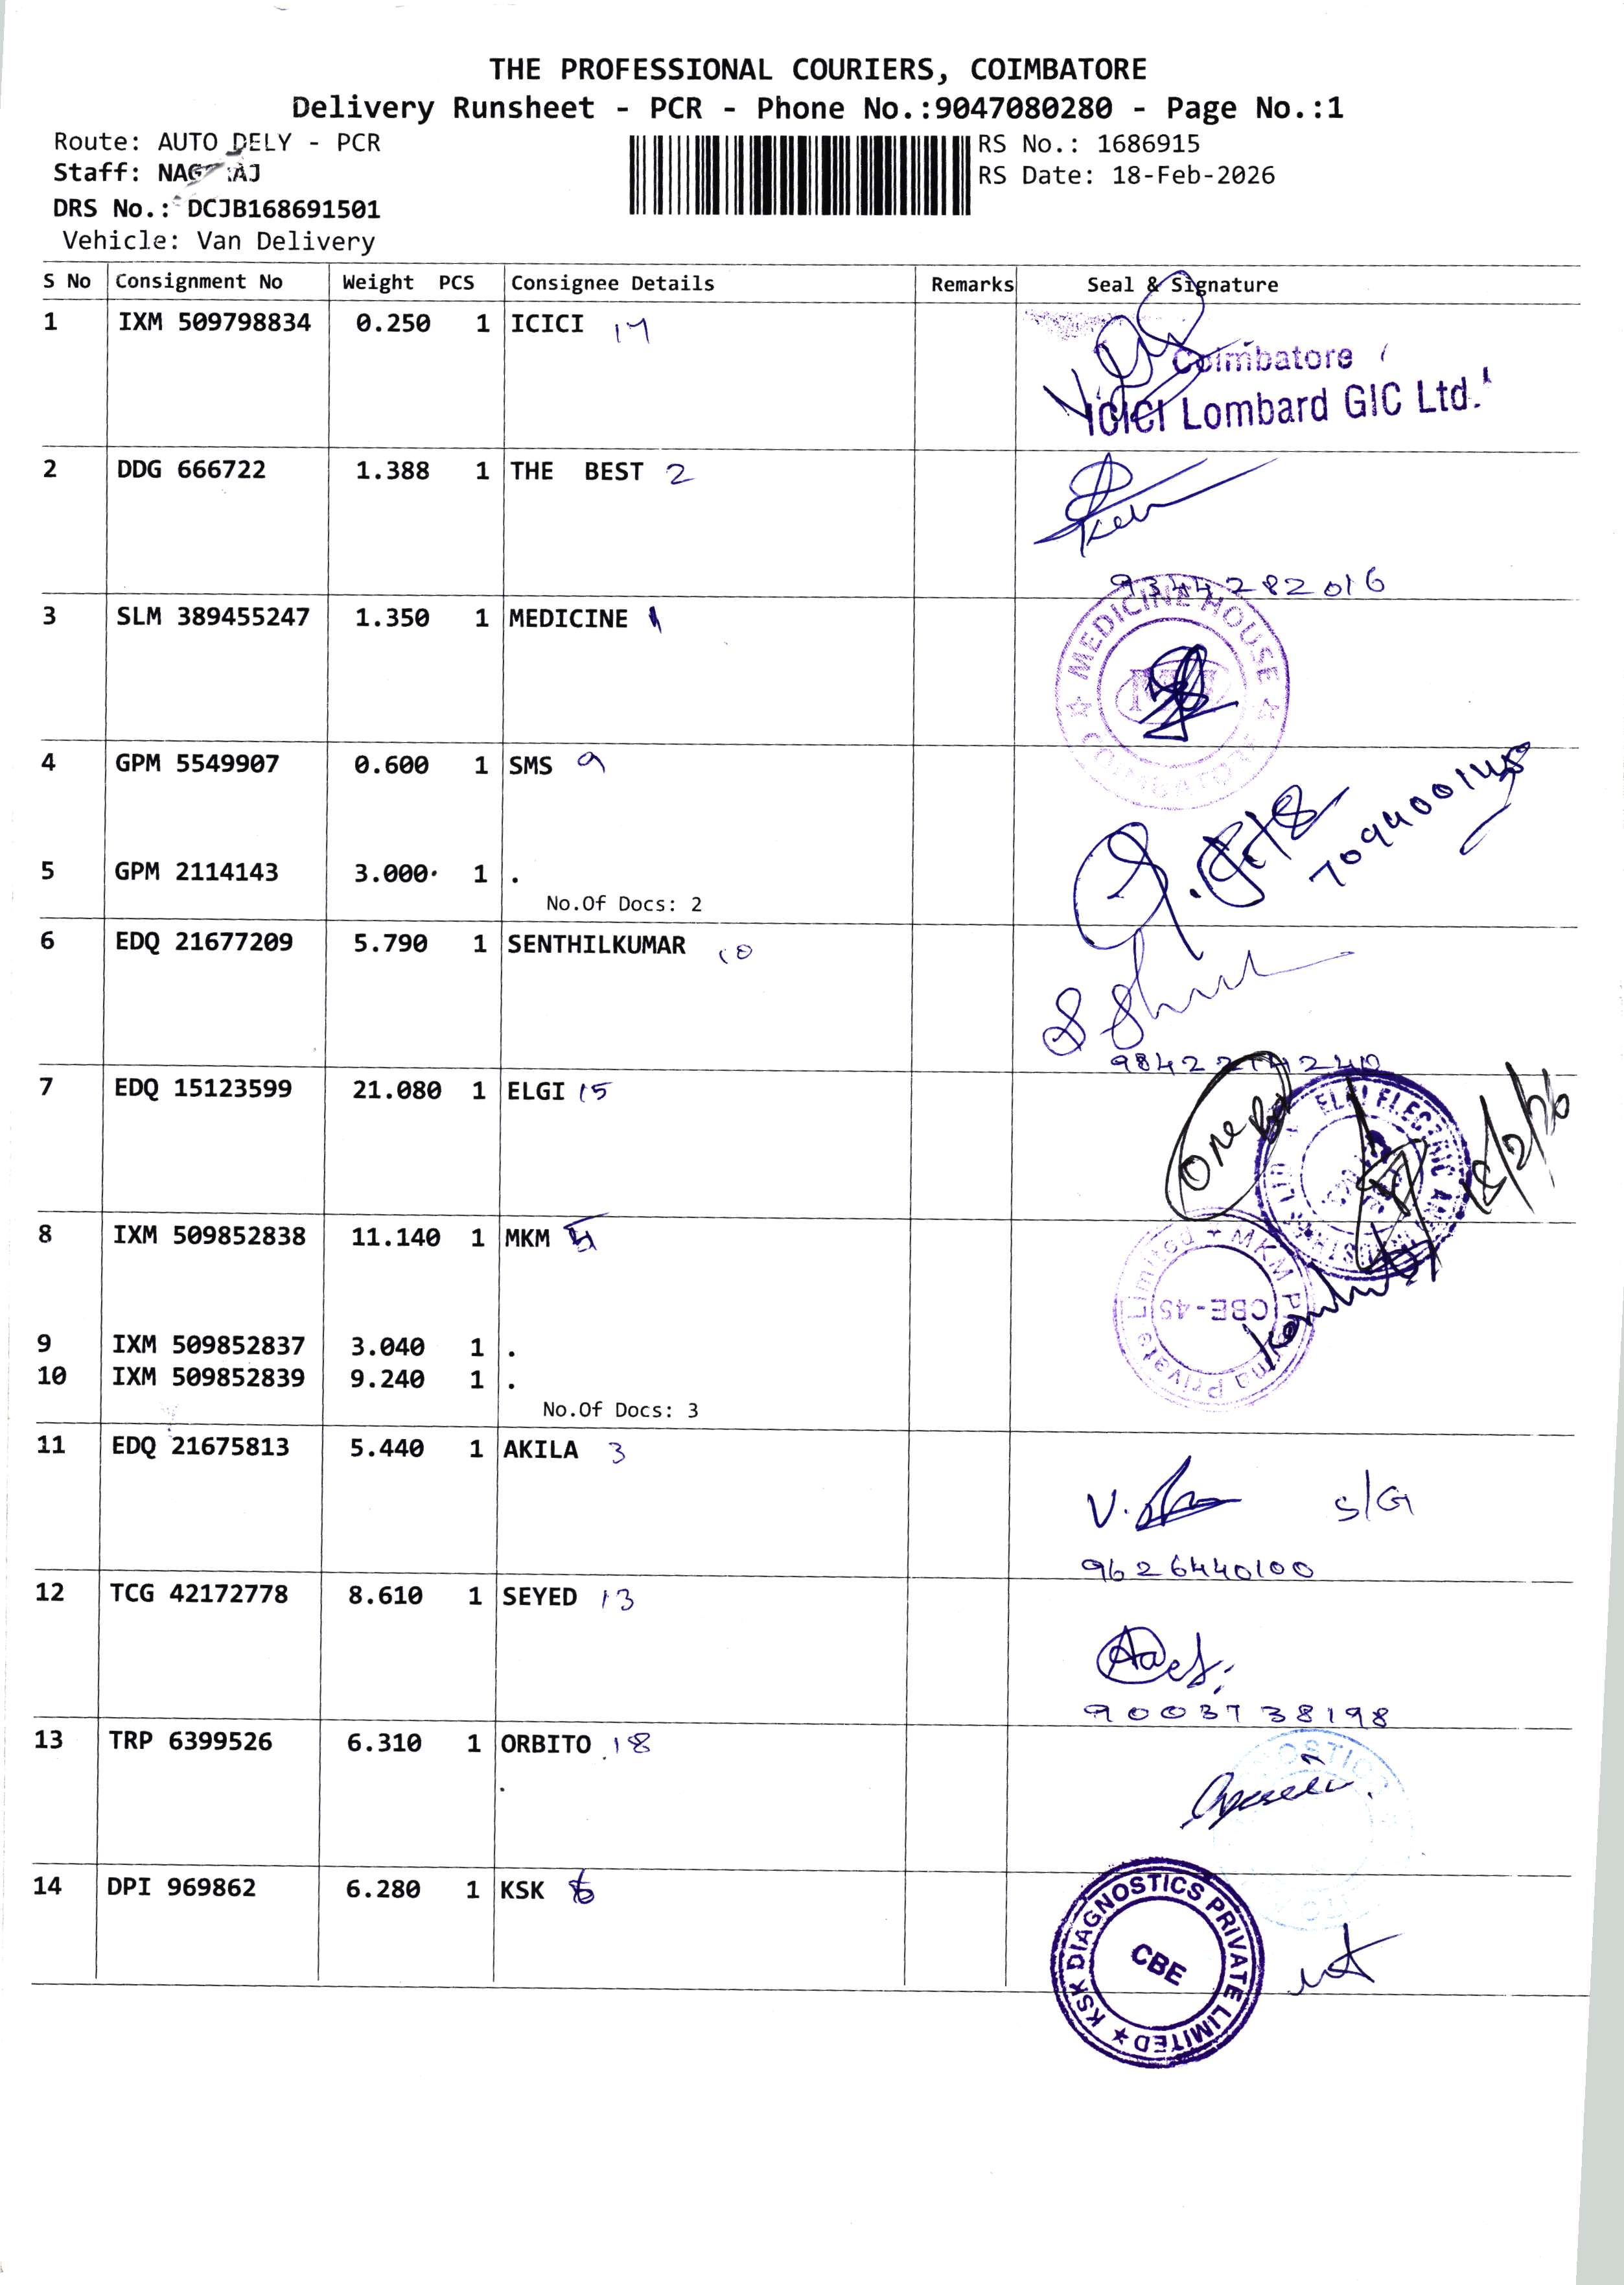 THE PROFESSIONAL COURIERS, COIMBATORE
Delivery Runsheet - PCR - Phone No.:9047080280 - Page No.:1
Route: AUTO DELY - PCR
RS No.: 1686915
Staff: NAG AJ
RS Date: 18-Feb-2026
DRS No.: DCJB168691501
Vehicle: Van Delivery
S No Consignment No Weight PCS Consignee Details Remarks Seal & Signature
1 IXM 509798834 0.250 1 ICICI 17
Coimbatore
ICICI Lombard GIC Ltd.
2 DDG 666722 1.388 1 THE BEST 2
9344282016
3 SLM 389455247 1.350 1 MEDICINE
MEDICINE HOUSE COIMBATORE
4 GPM 5549907 0.600 1 SMS 9
7094400148
5 GPM 2114143 3.000 1 .
No.Of Docs: 2
6 EDQ 21677209 5.790 1 SENTHILKUMAR 10
7 EDQ 15123599 21.080 1 ELGI 15
One Box
18/2/26
8 IXM 509852838 11.140 1 MKM
MKM Pharma Private Limited
CBE-45
9 IXM 509852837 3.040 1 .
10 IXM 509852839 9.240 1 .
No.Of Docs: 3
11 EDQ 21675813 5.440 1 AKILA 3
S/G
9626440100
12 TCG 42172778 8.610 1 SEYED 13
9003738198
13 TRP 6399526 6.310 1 ORBITO 18
.
14 DPI 969862 6.280 1 KSK 6
KSK DIAGNOSTICS PRIVATE LIMITED
CBE